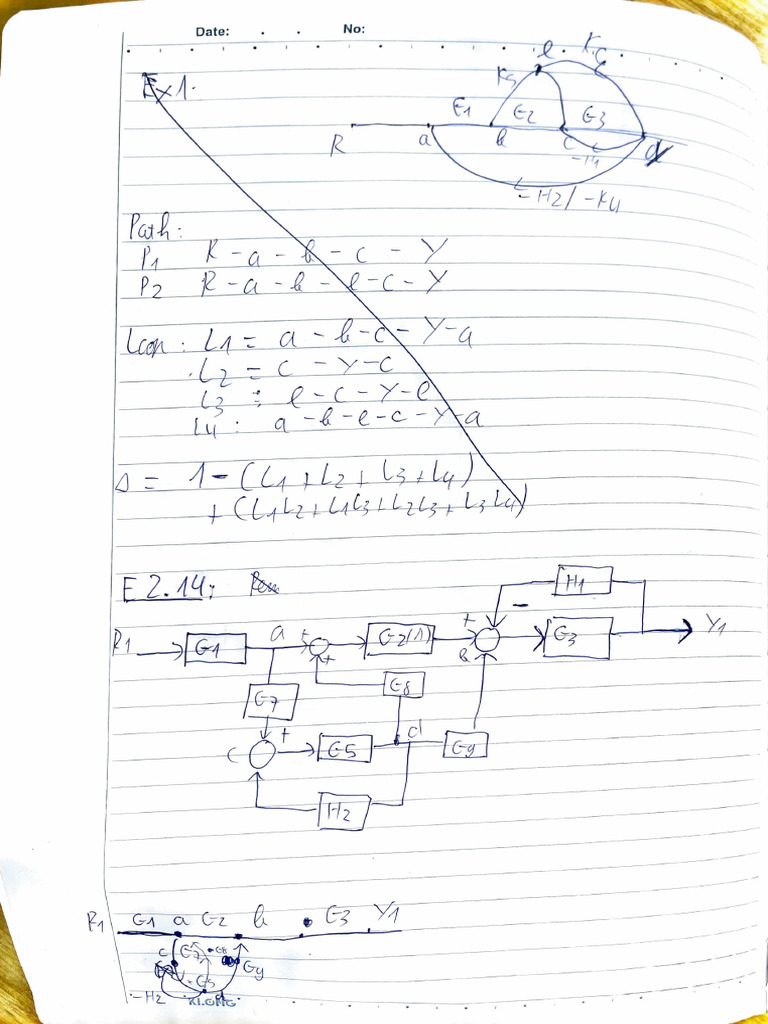 Date: . . No:
Ex1.
e K6
K5
G1 G2 G3
R a b c -H1 Y
-H2/ -K4
Path:
P1 R - a - b - c - Y
P2 R - a - b - e - c - Y
Loop: L1 = a - b - c - Y - a
L2 = c - Y - c
L3 = e - c - Y - e
L4: a - b - e - c - Y - a
Δ = 1 - (L1 + L2 + L3 + L4)
+ (L1L2 + L1L3 + L2L3 + L3L4)
E 2.14:
H1
R1 G1 a + G2(1) + - G3 Y1
+ B
G7 G8
+ d
C G5 G9
H2
R1 G1 a G2 b G3 Y1
c G7 G8
G5 G9
-H2 d
KLONG